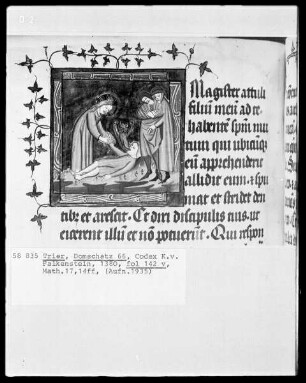 Magister attuli
filiū meū ad te
habentē spm mu
tum qui ubicūqȝ
eum apprehenderit
allidit eum et spu
mat et stridet den
tibȝ et arescit. Et dixi discipulis tuis. ut
eicerent illū et nō potuerūt. Qui respon
58 835 Trier, Domschatz 66, Codex K.v.
Falkenstein, 1380, fol 142 v,
Math.17,14ff, (Aufn.1935)